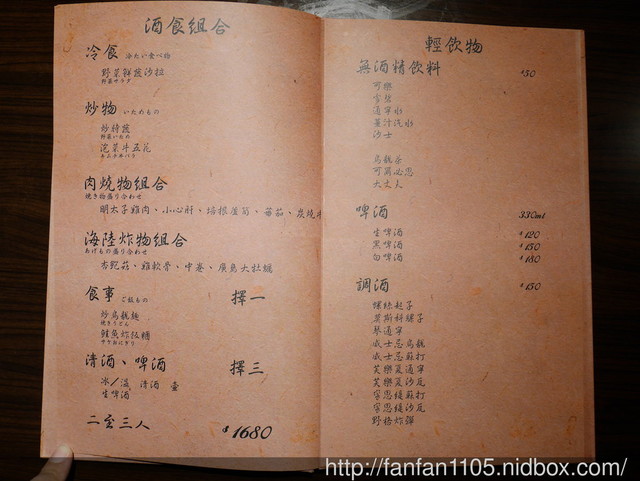 酒食組合
冷食 冷たい食べ物
野菜鮮蔬沙拉
野菜サラダ
炒物 いためもの
炒時蔬
野菜いため
泡菜牛五花
キムチ牛バラ
肉燒物組合
焼き物盛り合わせ
明太子雞肉、小心肝、培根蘆筍、番茄、炭燒
海陸炸物組合
あげもの盛り合わせ
杏鮑菇、雞軟骨、中卷、廣島大牡蠣
食事 ご飯もの 擇一
炒烏龍麵
焼きうどん
鮭魚炸飯糰
清酒、啤酒 擇三
冰/溫 清酒 壺
生啤酒
二至三人 $1680
輕飲物
無酒精飲料 $50
可樂
雪碧
通寧水
薑汁汽水
沙士
烏龍茶
可爾必思
大丈人
啤酒 330ml
生啤酒 $120
黑啤酒 $150
白啤酒 $180
調酒 $150
螺絲起子
莫斯科騾子
琴通寧
威士忌烏龍
威士忌蘇打
芙樂夏通寧
芙樂夏沙瓦
寧思緹蘇打
寧思緹沙瓦
野格炸彈
http://fanfan1105.nidbox.com/